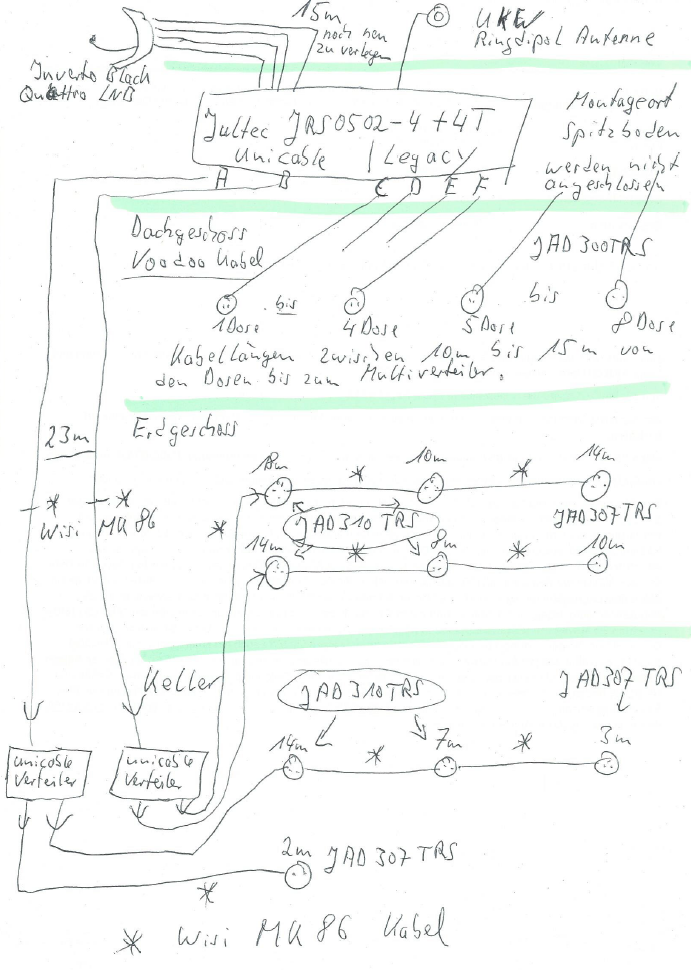 15m
noch neu
zu verlegen
UKW
Ringdipol Antenne
Inverto Black
Quattro LNB
Jultec JRS0502-4+4T
Unicable | Legacy
Montageort
Spitzboden
werden nicht
angeschlossen
A B C D E F
Dachgeschoss
Voodoo Kabel
JAD300TRS
bis bis
1Dose 4Dose 5Dose 8Dose
Kabellängen zwischen 10m bis 15m von
den Dosen bis zum Multiverteiler.
Erdgeschoss
23m
18m * 10m * 14m
* * Wisi MK 86
*
JAD310TRS JAD307TRS
14m * 8m * 10m
Keller
JAD310TRS JAD307TRS
unicable
Verteiler
unicable
Verteiler
14m * 7m * 3m
2m JAD307TRS
*
* Wisi MK86 Kabel